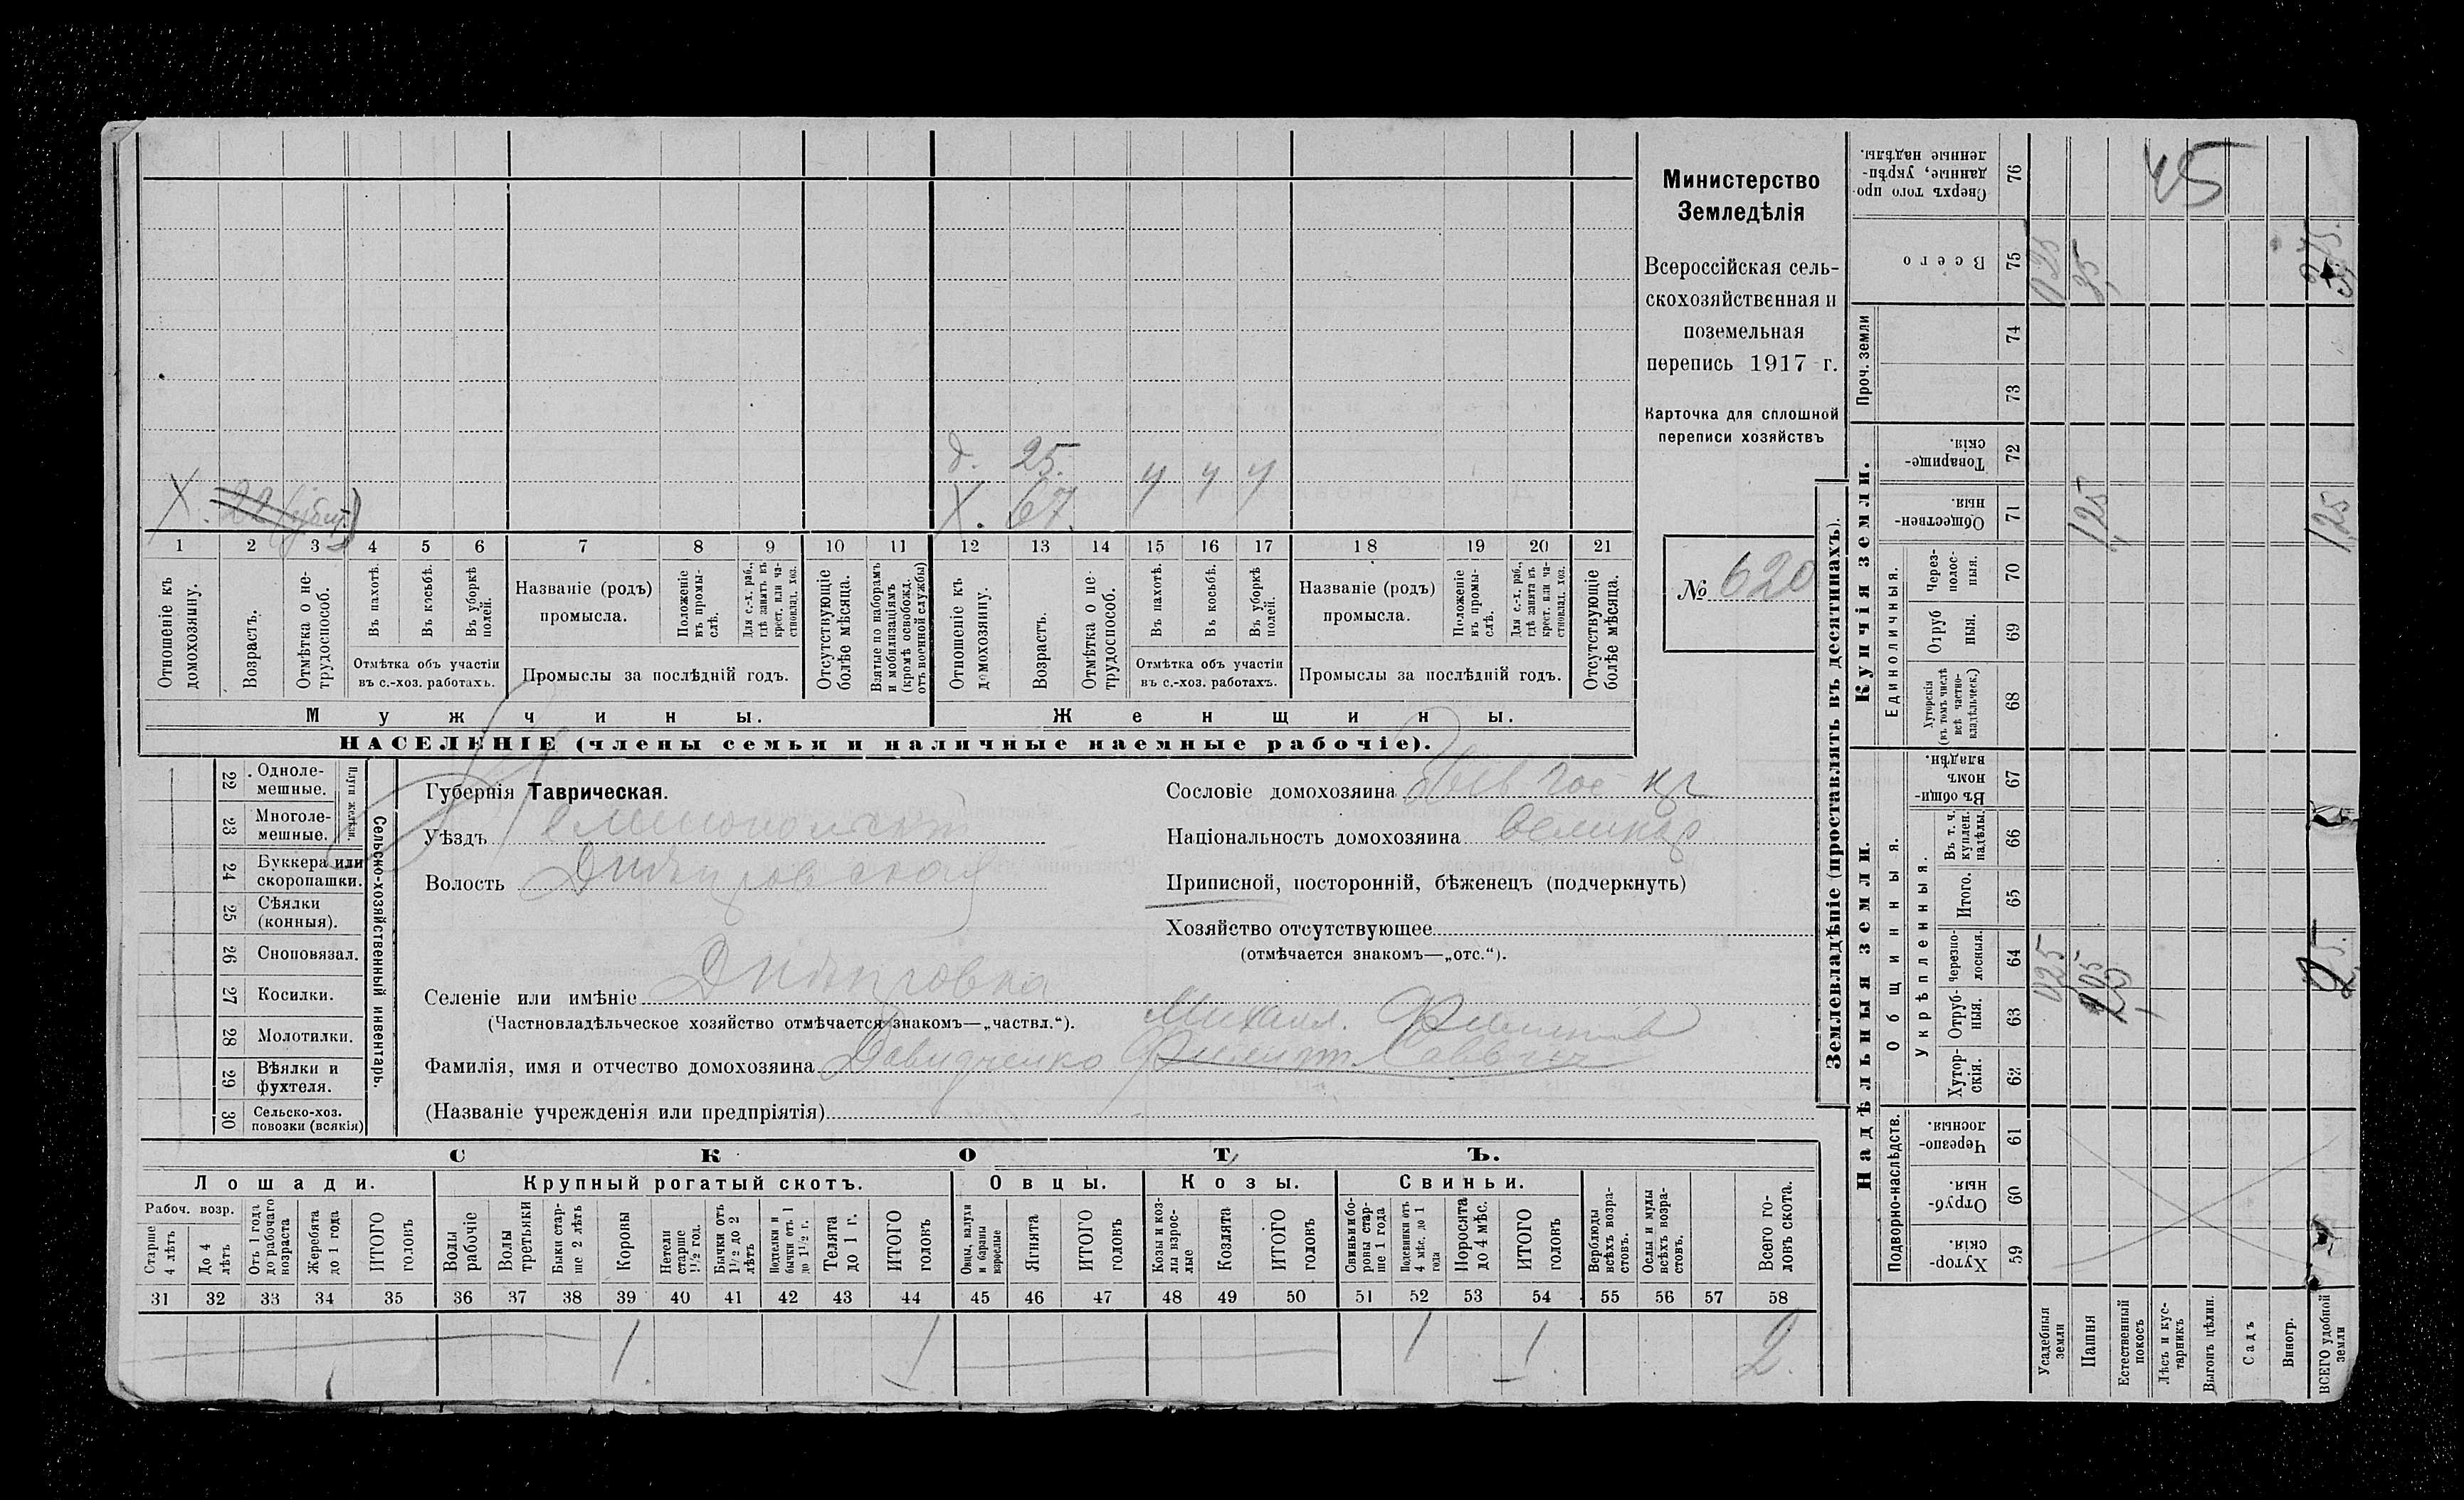 Министерство
Земледѣлія
Всероссійская сель-
скохозяйственная и
поземельная
перепись 1917 г.
Карточка для сплошной
переписи хозяйствъ
№ 620
д. 25.
X. 22 X. 67. ч ч ч
1 2 3 4 5 6 7 8 9 10 11 12 13 14 15 16 17 18 19 20 21
Отношеніе къ домохозяину.
Возрастъ.
Отмѣтка о не-трудоспособ.
Въ пахотѣ.
Въ косьбѣ.
Въ уборкѣ полей.
Отмѣтка объ участіи
въ с.-хоз. работахъ.
Названіе (родъ)
промысла.
Положеніе въ промы-слѣ.
Для с.-х. раб., гдѣ занятъ въ крест. или ча-стновлад. хоз.
Промыслы за послѣдній годъ.
Отсутствующіе болѣе мѣсяца.
Взятые по наборамъ и мобилизаціямъ (кромѣ освобожд. отъ военной службы)
Отношеніе къ домохозяину.
Возрастъ.
Отмѣтка о не-трудоспособ.
Въ пахотѣ.
Въ косьбѣ.
Въ уборкѣ полей.
Отмѣтка объ участіи
въ с.-хоз. работахъ.
Названіе (родъ)
промысла.
Положеніе въ промы-слѣ.
Для с.-х. раб., гдѣ занята въ крест. или ча-стновлад. хоз.
Промыслы за послѣдній годъ.
Отсутствующіе болѣе мѣсяца.
Мужчины. Женщины.
НАСЕЛЕНІЕ (члены семьи и наличные наемные рабочіе).
22 Одноле-мешные.
23 Многоле-мешные.
Плуги желѣзн.
24 Буккера или скоропашки.
25 Сѣялки (конныя).
26 Сноповязал.
27 Косилки.
28 Молотилки.
29 Вѣялки и фухтеля.
30 Сельско-хоз. повозки (всякія)
Сельско-хозяйственный инвентарь.
Губернія Таврическая.
Уѣздъ
Волость Днѣпровская
Селеніе или имѣніе Днѣпровка
(Частновладѣльческое хозяйство отмѣчается знакомъ—„частвл.“).
Михаил. Филиппов
Фамилія, имя и отчество домохозяина Давидченко Филипп. Саввич
(Названіе учрежденія или предпріятія)
Сословіе домохозяина кр
Національность домохозяина Великор
Приписной, посторонній, бѣженецъ (подчеркнуть)
Хозяйство отсутствующее
(отмѣчается знакомъ—„отс.“).
СКОТЪ.
Лошади. Крупный рогатый скотъ. Овцы. Козы. Свиньи.
Рабоч. возр.
Старше 4 лѣтъ
До 4 лѣтъ
Отъ 1 года до рабочаго возраста
Жеребята до 1 года
ИТОГО головъ
Волы рабочіе
Волы третьяки
Быки стар-ше 2 лѣтъ
Коровы
Нетели старше 1½ год.
Бычки отъ 1½ до 2 лѣтъ
Подтелки и бычки отъ 1 до 1½ г.
Телята до 1 г.
ИТОГО головъ
Овцы, валухи и бараны взрослые
Ягнята
ИТОГО головъ
Козы и коз-лы взрос-лые
Козлята
ИТОГО головъ
Свиньи и бо-ровы стар-ше 1 года
Подсвинки отъ 4 мѣс. до 1 года
Поросята до 4 мѣс.
ИТОГО головъ
Верблюды всѣхъ возра-стовъ.
Ослы и мулы всѣхъ возра-стовъ.
Всего го-ловъ скота.
31 32 33 34 35 36 37 38 39 40 41 42 43 44 45 46 47 48 49 50 51 52 53 54 55 56 57 58
1 1 1 1 2
Землевладѣніе (проставлять въ десятинахъ).
Надѣльныя земли. Купчія земли. Проч. земли
Подворно-наслѣдств.
Общинныя.
Укрѣпленныя.
Единоличныя.
59 Хутор-скія.
60 Отруб-ныя.
61 Черезпо-лосныя.
62 Хутор-скія.
63 Отруб-ныя.
64 Черезпо-лосныя.
65 Итого.
66 Въ т. ч. куплен. надѣлы.
67 Въ общин-номъ владѣн.
68 Хуторскія (въ томъ числѣ всѣ частно-владѣльческ.)
69 Отруб ныя.
70 Через-полос-ныя.
71 Обществен-ныя.
72 Товарище-скія.
73
74
75 Всего
76 Сверхъ того про-данные, укрѣп-ленные надѣлы.
Усадебныя земли 025 025
Пашня 1,25 3,5
Естественный покосъ
Лѣсъ и кус-тарникъ
Выгонъ цѣлин.
Садъ
Виногр.
ВСЕГО удобной земли 1,25
45